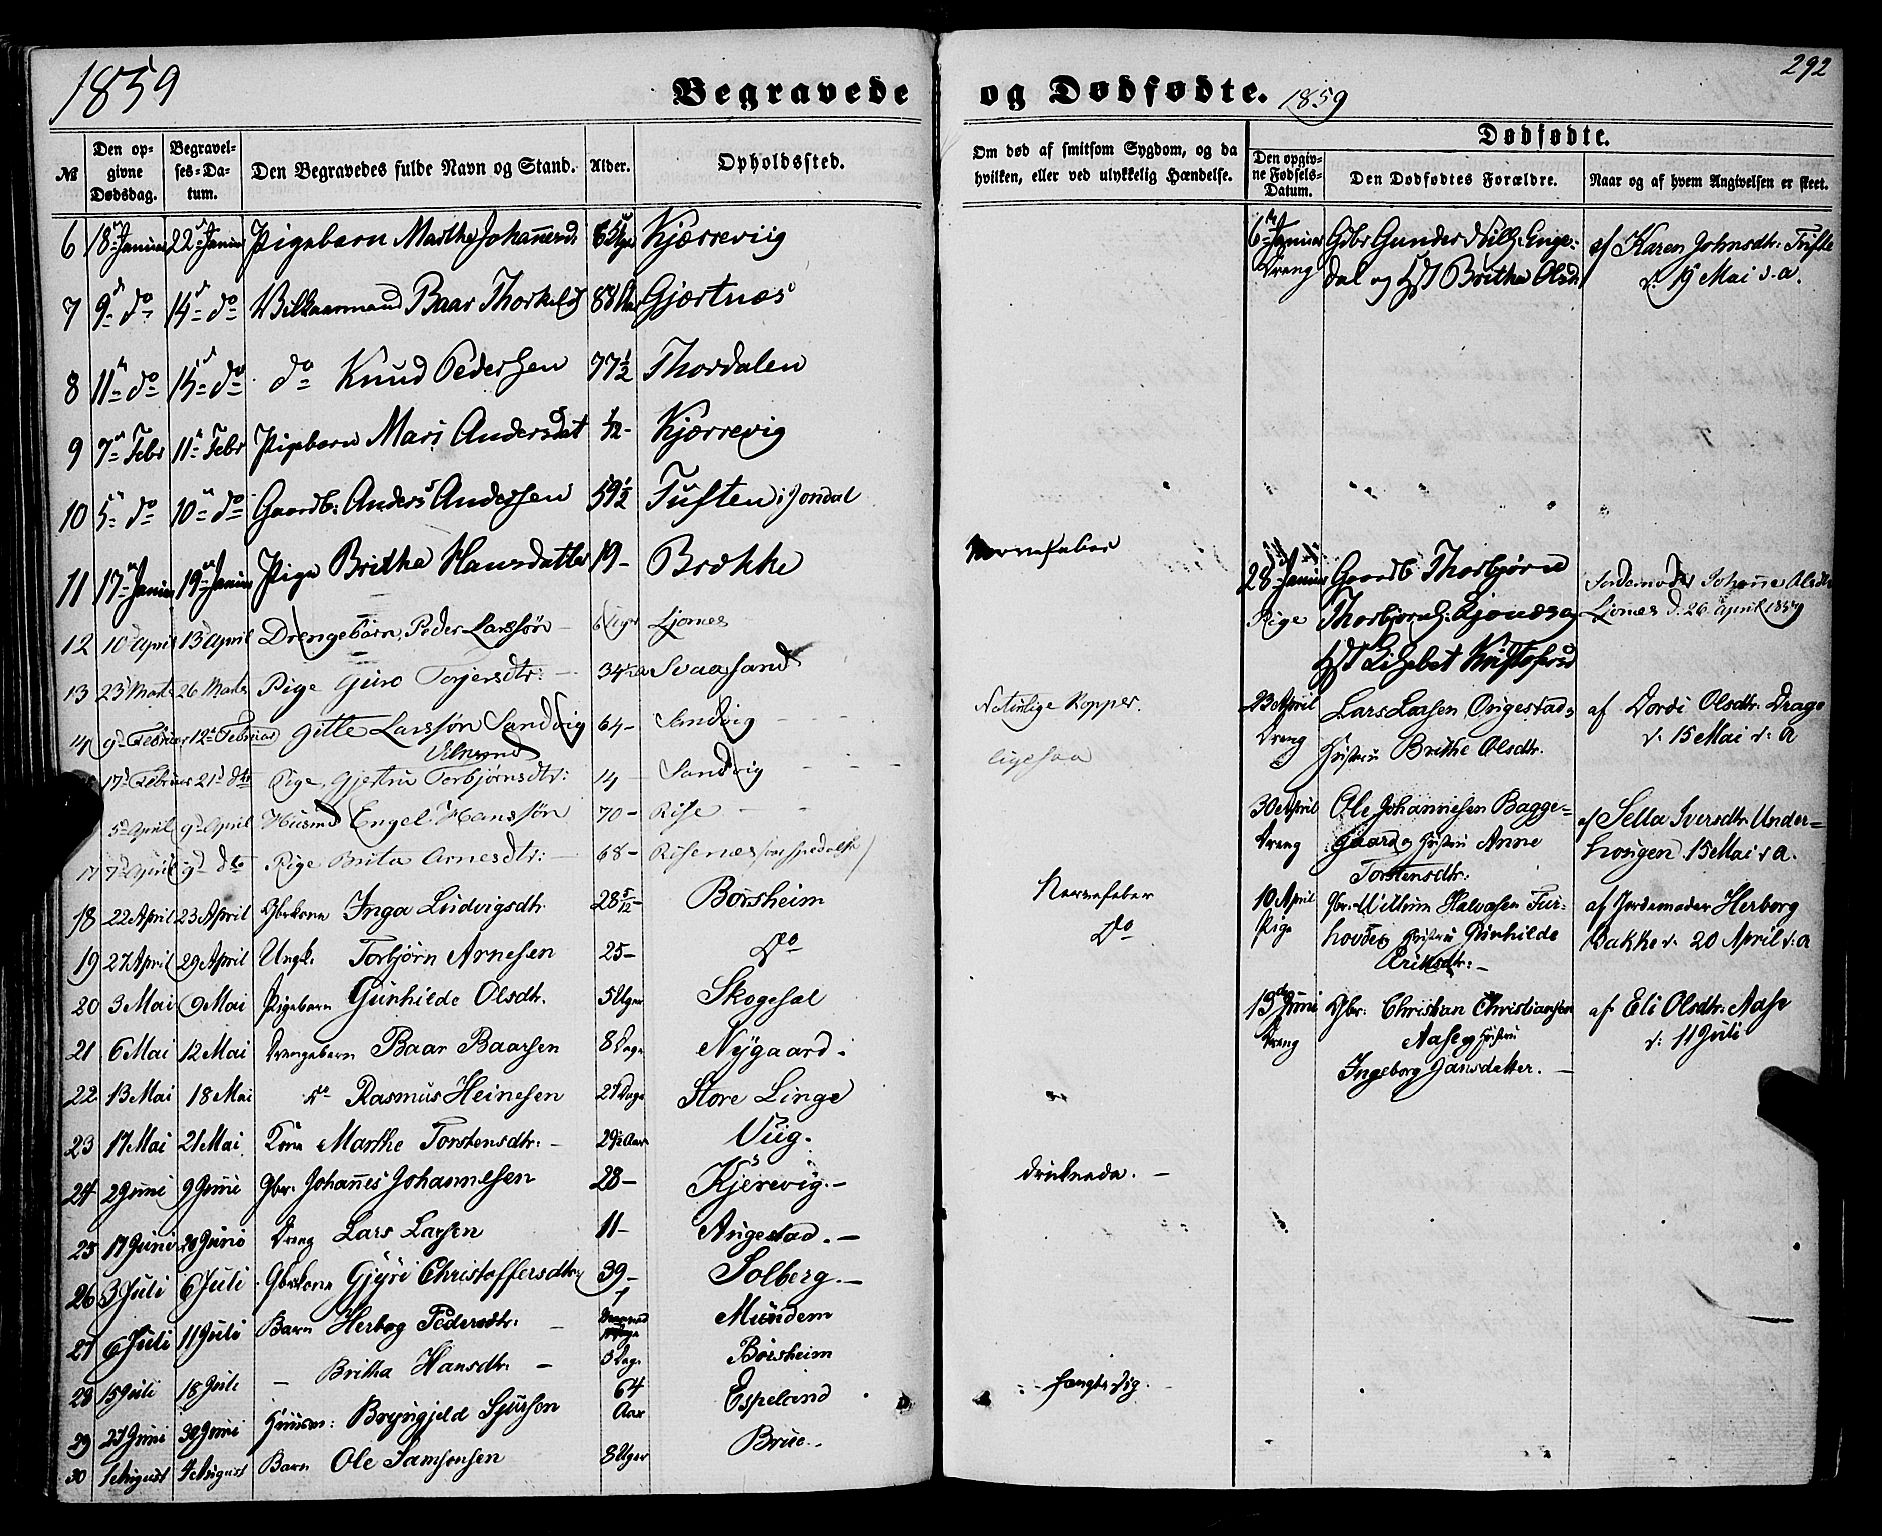 1859
Begravede og Dødfødte. 1859
292
№ | Den opgivne Dødsdag. | Begravelses-Datum. | Den Begravedes fulde Navn og Stand. | Alder. | Opholdssted. | Om død af smitsom Sygdom, og da hvilken, eller ved ulykkelig Hændelse.
6 18 Januar 22 Januar Pigebarn Marthe Johannesd. Kjærreviig
7 9 do 14 do Vilkaarmand Baar Thorkelss 88 Gjærtnæs
8 11 do 15 do do Knud Pedersen 77 1/2 Thordalen
9 7 Febr 11 Febr Pigebarn Mari Andersdat 1/12 Kjærrevig
10 5 do 10 do Gaardb: Anders Andersen 59 1/2 Tuften i Jondal
11 17 Januar 19 Januar Pige Britha Hansdatter 19 - Brække Nervefeber
12 10 April 13 April Drengebarn, Peder Larssøn 6 Uger Ljones
13 23 Marts 26 Marts Pige Guro Torjersdtr: 34 Svaasand
14 9 Februar 12 Februar Gitte Larssøn Sandvig 64 - Sandvig Naturlige Kopper.
17 Februar 21 dto Pige, Gjertru Torbjørnsdtr: 14 Sandvig ligesaa
5 April 9 April Husmd Engel Hanssøn 70 - Rise
17 7 April 9 dto Pige Brita Arnesdtr: 68 - Risenæs (var spedalsk)
18 22 April 23 April Gbrkone Inga Ludvigsdtr 28 5/12 - Børsheim Nervefeber
19 27 April 29 April Ungk. Torbjörn Arnesen 25 - Do Do
20 3 Mai 9 Mai Pigebarn Gunhilde Olsdtr. 5 Uger Skogesæl
21 6 Mai 12 Mai Drengebarn Baar Baarsen 8 Dage Nygaard.
22 13 Mai 18 Mai do Rasmus Heinesen 21 Dage Store Linge
23 17 Mai 21 Mai Kone Marthe Torstensdtr: - 29 1/2 Aar Viig.
24 2 Juni 9 Juni Gbr. Johannes Johannesen 28 - Kjerevig. - druknede. -
25 17 Juni 20 Juni Dreng Lars Larsen 11 - Angestad. -
26 3 Juli 6 Juli Gbrkone Gjyri Christoffersdtr 39 - Solberg. -
27 6 Juli 11 Juli Barn Herbog Pedersdtr: - Mundem
28 15 Juli 18 Juli - Britha Hansdtr. - 3 Dage Börsheim
29 27 Juni 30 Juni Huusm: Bryngjeld Sjursen 64 Aar Espeland hængte sig.
30 1 August 4 August Barn Ole Samsonsen 8 Uger Brue.
Dødfødte.
Den opgivne Fødsels-Datum. | Den Dødfødtes Forældre. | Naar og af hvem Angivelsen er skeet.
6 Januar Gdbr Gunder Nilss: Enge- af Karen Johnsdtr. Tufte
Dreng dal og Hst Britha Olsd. d. 19 Mai s.a.
28 Januar Gaardb Thorbjørn Jordemoder Johanne Olsdtr
Pige Thorbjørns: Ljones og Ljones d. 26 April 1859
Hst Lisebet Kristofersd
23 April Lars Larsen Ongestad og af Dordi Olsdtr. Drage
Dreng Hustru Brithe Olsdtr. d. 15 Mai s. a
30 April Ole Johannesen Bagge- af Sella Iversdtr. Under-
Dreng gaard og Hustru Anne hougen. 15 Mai s a.
Torstensdtr.
10 April Gbr. Willum Halvasen Fur- af Jordemoder Herborg
Pige hovde og Hustru Gunhilde Bakke d. 20 April s. a
Eriksdtr: -
13de Juni Gbr: Christian Christiansen af Eli Olsdtr. Aase
Dreng Aase og Hustru d: 11 Juli
Ingeborg Hansdatter. -